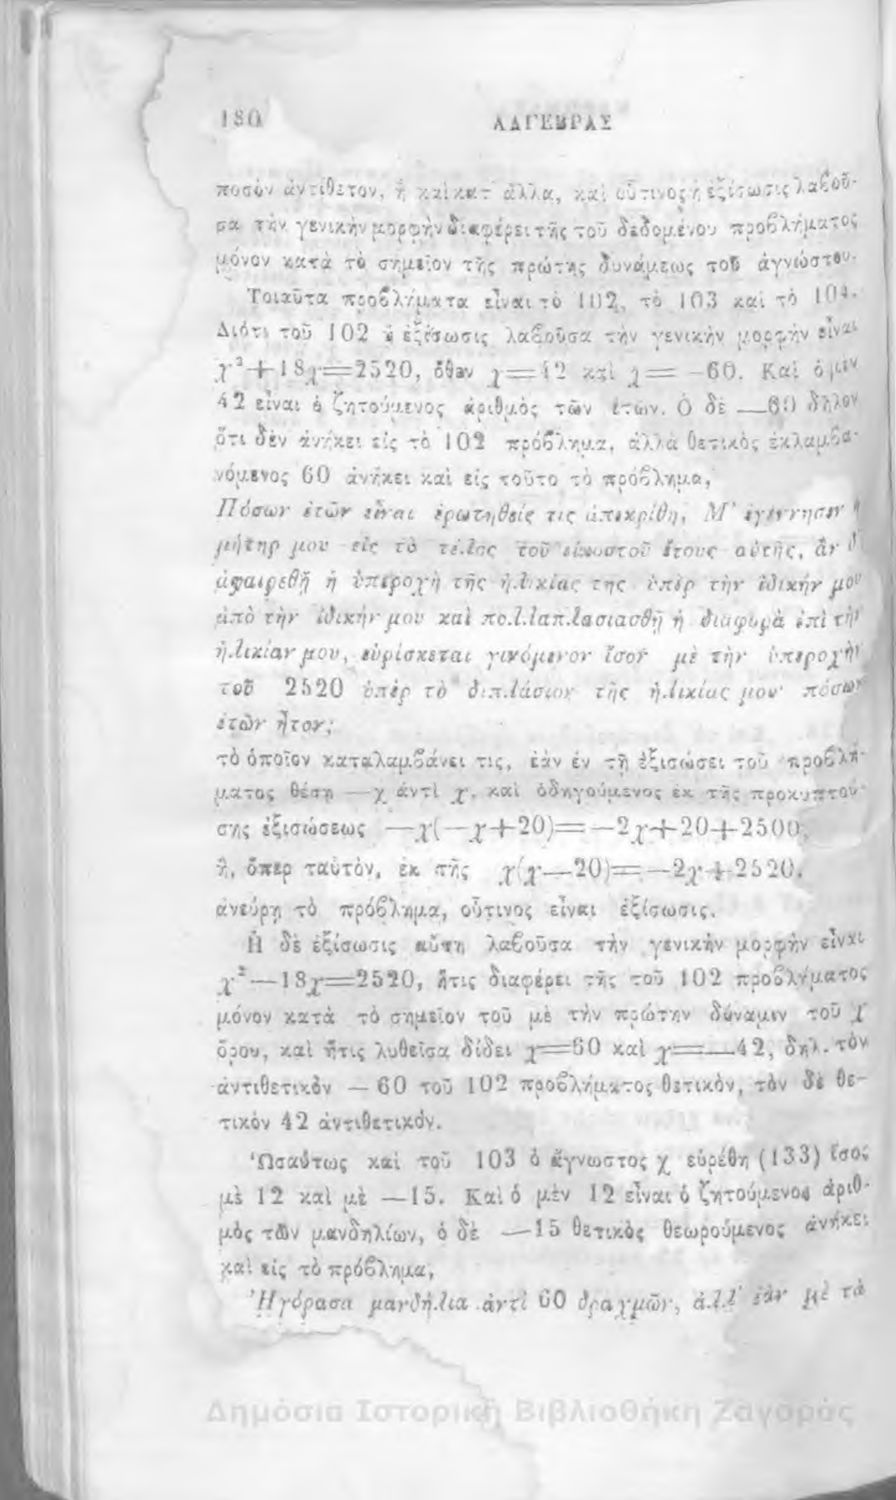 180
ΑΛΓΕΒΡΑΣ
ποσὸν ἀντίθετον, ἢ καὶ κατ' ἄλλα, καὶ οὗτινος ἡ ἐξίσωσις λαβοῦ-
σα τὴν γενικὴν μορφὴν διαφέρει τῆς τοῦ δεδομένου προβλήματος
μόνον κατὰ τὸ σημεῖον τῆς πρώτης δυνάμεως τοῦ ἀγνώστου.
Τοιαῦτα προβλήματα εἶναι τὸ 102, τὸ 103 καὶ τὸ 104.
Διότι τοῦ 102 ἡ ἐξίσωσις λαβοῦσα τὴν γενικὴν μορφὴν εἶναι
χ²+18χ=2520, ὅθεν χ=42 καὶ χ= —60. Καὶ ὁ μὲν
42 εἶναι ὁ ζητούμενος ἀριθμὸς τῶν ἐτῶν. Ὁ δὲ —60 δῆλον
ὅτι δὲν ἀνήκει εἰς τὸ 102 πρόβλημα, ἀλλὰ θετικὸς ἐκλαμβα-
νόμενος 60 ἀνήκει καὶ εἰς τοῦτο τὸ πρόβλημα,
Πόσων ἐτῶν εἶναι ἐρωτηθείς τις ἀπεκρίθη, Μ' ἐγέννησεν ἡ
μήτηρ μου εἰς τὸ τέλος τοῦ εἰκοστοῦ ἔτους αὐτῆς, ἂν δ'
ἀφαιρεθῇ ἡ ὑπεροχὴ τῆς ἡλικίας της ὑπὲρ τὴν ἰδικήν μου
ἀπὸ τὴν ἰδικήν μου καὶ πολλαπλασιασθῇ ἡ διαφορὰ ἐπὶ τὴν
ἡλικίαν μου, εὑρίσκεται γινόμενον ἴσον μὲ τὴν ὑπεροχὴν
τοῦ 2520 ὑπὲρ τὸ διπλάσιον τῆς ἡλικίας μου· πόσων
ἐτῶν ἦτον;
τὸ ὁποῖον καταλαμβάνει τις, ἐὰν ἐν τῇ ἐξισώσει τοῦ προβλή-
ματος θέσῃ —χ ἀντὶ χ, καὶ ὁδηγούμενος ἐκ τῆς προκυπτού-
σης ἐξισώσεως —χ(—χ+20)=—2χ+20+2500,
ἢ, ὅπερ ταὐτὸν, ἐκ τῆς χ(χ—20)=—2χ+2520,
ἀνεύρῃ τὸ πρόβλημα, οὗτινος εἶναι ἐξίσωσις.
Ἡ δὲ ἐξίσωσις αὕτη λαβοῦσα τὴν γενικὴν μορφὴν εἶναι
χ²—18χ=2520, ἥτις διαφέρει τῆς τοῦ 102 προβλήματος
μόνον κατὰ τὸ σημεῖον τοῦ μὲ τὴν πρώτην δύναμιν τοῦ χ
ὅρου, καὶ ἥτις λυθεῖσα δίδει χ=60 καὶ χ=—42, δηλ. τὸν
ἀντιθετικὸν — 60 τοῦ 102 προβλήματος θετικὸν, τὸν δὲ θε-
τικὸν 42 ἀντιθετικόν.
Ὡσαύτως καὶ τοῦ 103 ὁ ἄγνωστος χ εὑρέθη (133) ἴσος
μὲ 12 καὶ μὲ —15. Καὶ ὁ μὲν 12 εἶναι ὁ ζητούμενος ἀριθ-
μὸς τῶν μανδηλίων, ὁ δὲ —15 θετικὸς θεωρούμενος ἀνήκει
καὶ εἰς τὸ πρόβλημα,
Ἠγόρασα μανδήλια ἀντὶ 60 δραχμῶν, ἀλλ' ἐὰν μὲ τὰ
Δημόσια Ιστορική Βιβλιοθήκη Ζαγοράς